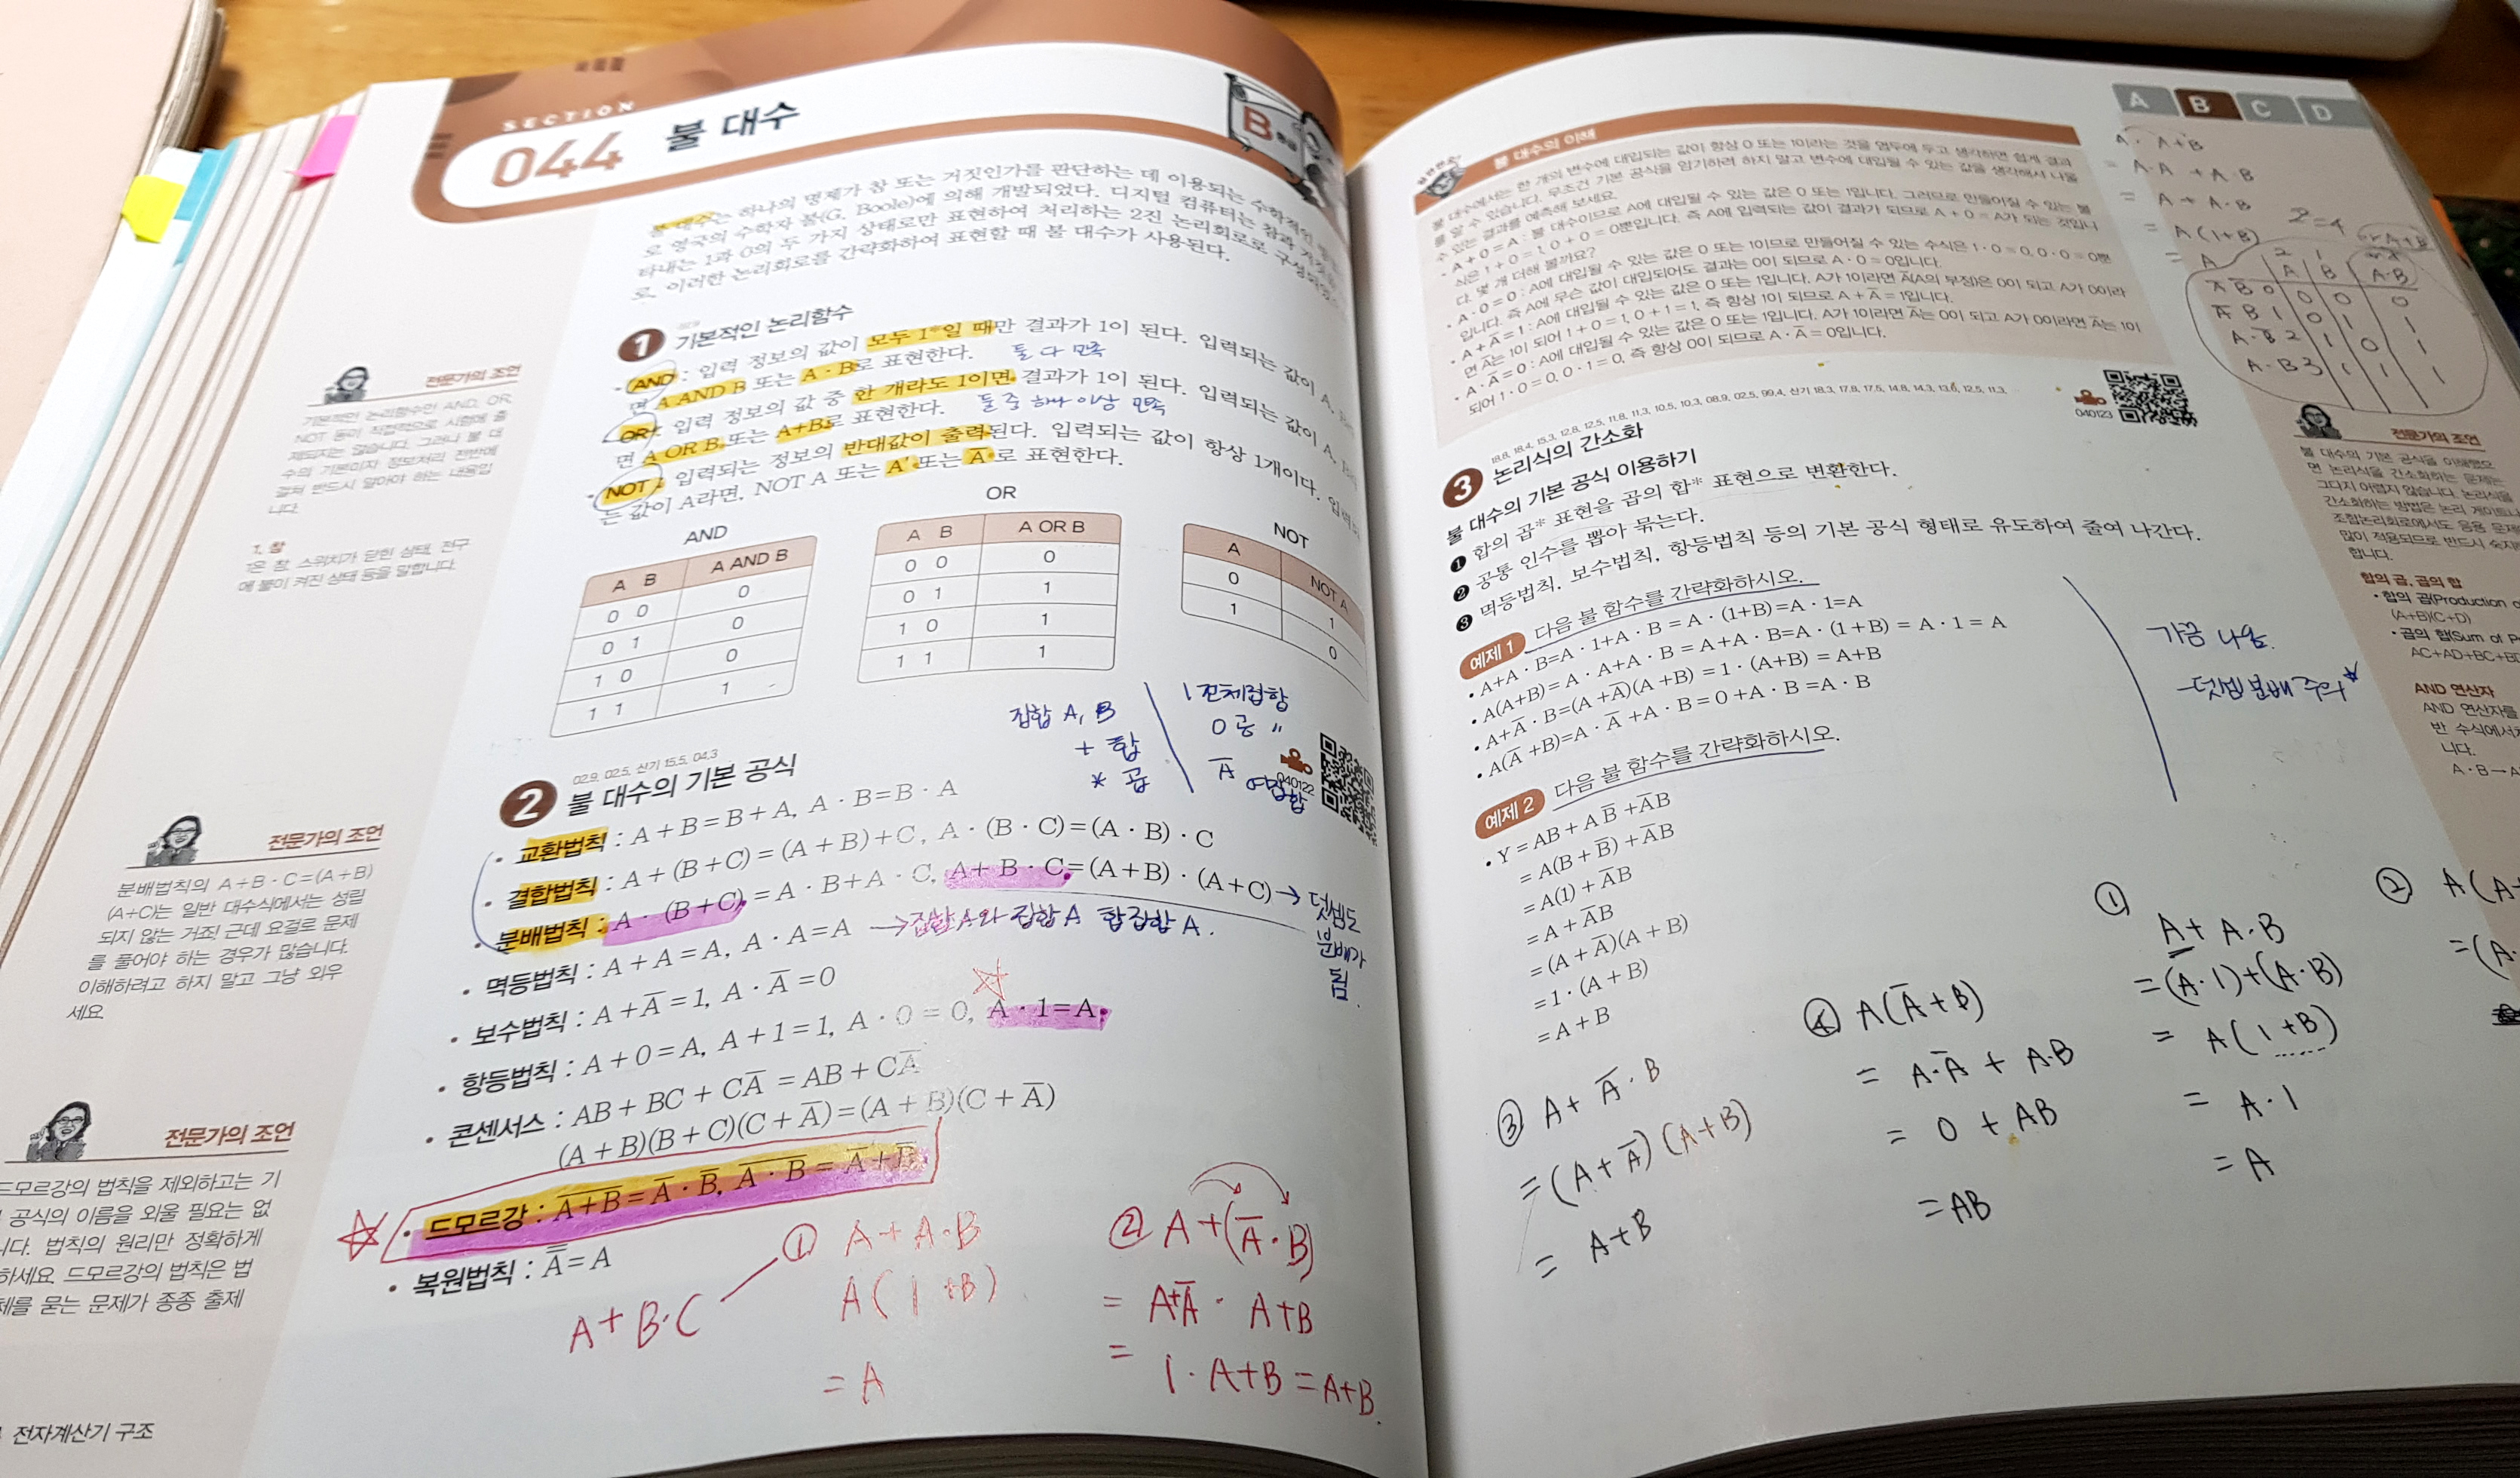 SECTION
044 불 대수
B
불 대수는 하나의 명제가 참 또는 거짓인가를 판단하는 데 이용되는 수학적인
로 영국의 수학자 불(G. Boole)에 의해 개발되었다. 디지털 컴퓨터는 참과
타내는 1과 0의 두 가지 상태로만 표현하여 처리하는 2진 논리회로로 구성
로, 이러한 논리회로를 간략화하여 표현할 때 불 대수가 사용된다.
1 기본적인 논리함수
• AND : 입력 정보의 값이 모두 1*일 때만 결과가 1이 된다. 입력되는 값이 A,
면 A AND B 또는 A · B로 표현한다. 둘 다 만족
• OR : 입력 정보의 값 중 한 개라도 1이면 결과가 1이 된다. 입력되는 값이 A,
면 A OR B 또는 A+B로 표현한다. 둘 중 하나 이상 만족
• NOT : 입력되는 정보의 반대값이 출력된다. 입력되는 값이 항상 1개이다.
는 값이 A라면, NOT A 또는 A' 또는 A̅로 표현한다.
AND
A B A AND B
0 0 0
0 1 0
1 0 0
1 1 1
OR
A B A OR B
0 0 0
0 1 1
1 0 1
1 1 1
NOT
A NOT A
0 1
1 0
집합 A, B
+ 합
* 곱
1 전체집합
0 공 〃
A̅ 여집합
040122
02.9, 02.5, 산기 15.5, 04.3
2 불 대수의 기본 공식
• 교환법칙 : A+B=B+A, A · B=B · A
• 결합법칙 : A+(B+C)=(A+B)+C, A · (B · C)=(A · B) · C
• 분배법칙 : A · (B+C)=A · B+A · C, A+B · C=(A+B) · (A+C) → 덧셈도
분배가
됨.
• 멱등법칙 : A+A=A, A · A=A → 집합 A와 집합 A 합집합 A.
• 보수법칙 : A+A̅=1, A · A̅=0
• 항등법칙 : A+0=A, A+1=1, A · 0=0, A · 1=A
• 콘센서스 : AB+BC+CA̅=AB+CA̅
(A+B)(B+C)(C+A̅)=(A+B)(C+A̅)
• 드모르강 : A̅+̅B̅=A̅ · B̅, A̅ ̅·̅ ̅B̅=A̅+B̅
• 복원법칙 : A̿=A
A+B·C
① A+A·B
A(1+B)
= A
② A+(A̅·B)
= A+A̅ · A+B
= 1 · A+B = A+B.
전문가의 조언
기본적인 논리함수인 AND, OR,
NOT 등이 직접적으로 시험에 출
제되지는 않습니다. 그러나 불 대
수의 기본이자 정보처리 전반에
걸쳐 반드시 알아야 하는 내용입
니다.
1, 참
1은 참, 스위치가 닫힌 상태, 전구
에 불이 켜진 상태 등을 말합니다.
전문가의 조언
분배법칙의 A+B · C=(A+B)
(A+C)는 일반 대수식에서는 성립
되지 않는 거죠! 근데 요걸로 문제
를 풀어야 하는 경우가 많습니다.
이해하려고 하지 말고 그냥 외우
세요.
전문가의 조언
드모르강의 법칙을 제외하고는 기
공식의 이름을 외울 필요는 없
니다. 법칙의 원리만 정확하게
하세요. 드모르강의 법칙은 법
체를 묻는 문제가 종종 출제
전자계산기 구조
A B C D
불 대수의 이해
불 대수에서는 한 개의 변수에 대입되는 값이 항상 0 또는 1이라는 것을 염두에 두고 생각하면 쉽게 결과
를 알 수 있습니다. 무조건 기본 공식을 암기하려 하지 말고 변수에 대입될 수 있는 값을 생각해서 나올
수 있는 결과를 예측해 보세요.
• A+0=A : 불 대수이므로 A에 대입될 수 있는 값은 0 또는 1입니다. 그러므로 만들어질 수 있는 불
식은 1+0=1, 0+0=0뿐입니다. 즉 A에 입력되는 값이 결과가 되므로 A+0=A가 되는 것입니
다. 몇 개 더해 볼까요?
• A · 0=0 : A에 대입될 수 있는 값은 0 또는 1이므로 만들어질 수 있는 수식은 1 · 0=0, 0 · 0=0뿐
입니다. 즉 A에 무슨 값이 대입되어도 결과는 0이 되므로 A · 0=0입니다.
• A+A̅=1 : A에 대입될 수 있는 값은 0 또는 1입니다. A가 1이라면 A̅(A의 부정)은 0이 되고 A가 0이라
면 A̅는 1이 되어 1+0=1, 0+1=1, 즉 항상 1이 되므로 A+A̅=1입니다.
• A · A̅=0 : A에 대입될 수 있는 값은 0 또는 1입니다. A가 1이라면 A̅는 0이 되고 A가 0이라면 A̅는 1이
되어 1 · 0=0, 0 · 1=0, 즉 항상 0이 되므로 A · A̅=0입니다.
A · A+B
= A·A + A·B
= A + A·B
= A(1+B)
= A
2²=4
2 1
A B A·B
A̅ B̅ 0 0 0 0
A̅ B 1 0 1 1
A·B̅ 2 1 0 1
A·B 3 1 1 1
040123
18.8, 18.4, 15.3, 12.8, 12.5, 11.8, 11.3, 10.5, 10.3, 08.9, 02.5, 99.4, 산기 18.3, 17.8, 17.5, 14.8, 14.3, 13.6, 12.5, 11.3,
3 논리식의 간소화
불 대수의 기본 공식 이용하기
❶ 합의 곱* 표현을 곱의 합* 표현으로 변환한다.
❷ 공통 인수를 뽑아 묶는다.
❸ 멱등법칙, 보수법칙, 항등법칙 등의 기본 공식 형태로 유도하여 줄여 나간다.
예제 1 다음 불 함수를 간략화하시오.
• A+A · B=A · 1+A · B=A · (1+B)=A · 1=A
• A(A+B)=A · A+A · B=A+A · B=A · (1+B)=A · 1=A
• A+A̅ · B=(A+A̅)(A+B)=1 · (A+B)=A+B
• A(A̅+B)=A · A̅+A · B=0+A · B=A · B
가끔 나옴.
덧셈 분배 주의
예제 2 다음 불 함수를 간략화하시오.
• Y=AB+AB̅+A̅B
=A(B+B̅)+A̅B
=A(1)+A̅B
=A+A̅B
=(A+A̅)(A+B)
=1 · (A+B)
=A+B
③ A+A̅·B
=(A+A̅)(A+B)
= A+B
④ A(A̅+B)
= A·A̅ + A·B
= 0 + AB
= AB
①
A+A·B
=(A·1)+(A·B)
= A(1+B)
= A·1
= A
② A(A+
=(A·
전문가의 조언
불 대수의 기본 공식을 이해했으
면 논리식을 간소화하는 문제는
그다지 어렵지 않습니다. 논리식을
간소화하는 방법은 논리 게이트나
조합논리회로에서도 응용 문제
많이 적용되므로 반드시 숙지
합니다.
합의 곱, 곱의 합
• 합의 곱(Production
(A+B)(C+D)
• 곱의 합(Sum of
AC+AD+BC+BD
AND 연산자
AND 연산자를
반 수식에서처
니다.
A · B→A